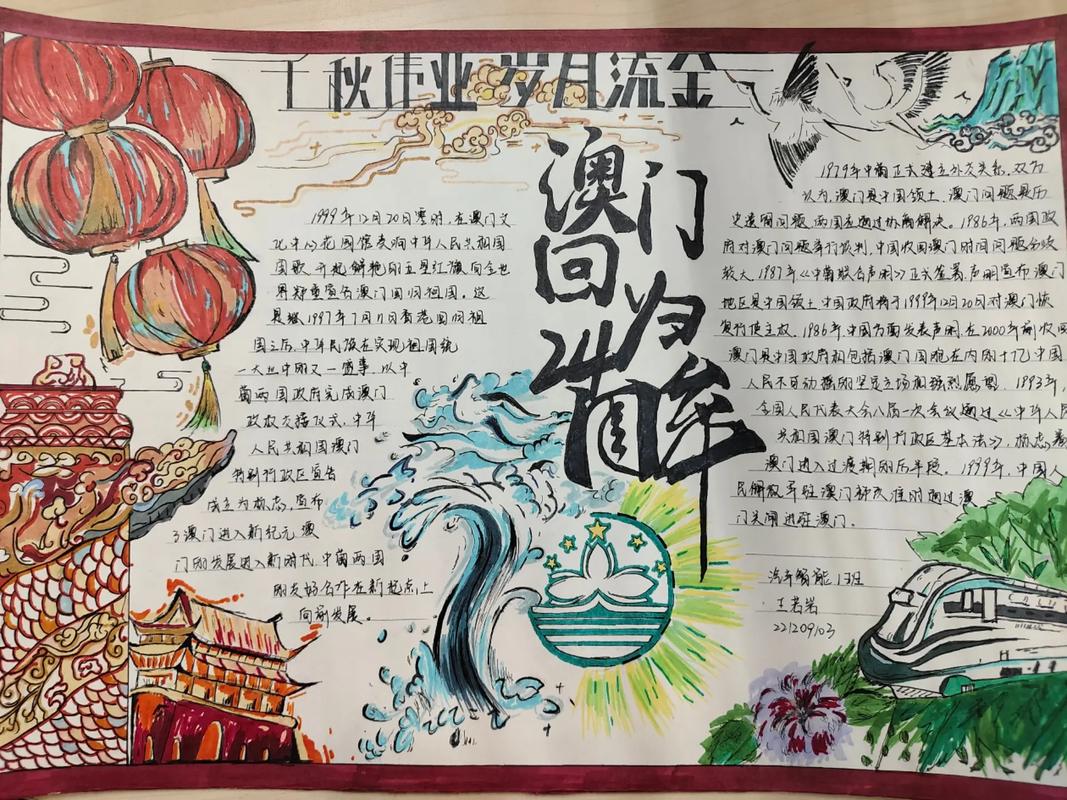 千秋伟业 岁月流金
澳门
回归
准眸
1999年12月20日零时,在澳门文
化中心花园馆奏响中华人民共和国
国歌,升起鲜艳的五星红旗向全世
界郑重宣告澳门回归祖国。这
是继1997年7月1日香港回归祖
国之后,中华民族在实现祖国统
一大业中的又一盛事,以中
葡两国政府完成澳门
政权交接仪式,中华
人民共和国澳门
特别行政区宣告
成立为标志,宣布
了澳门进入新纪元,澳
门的发展进入新时代,中葡两国
的友好合作在新起点上
向前发展。
1979年中葡正式建立外交关系,双方
认为,澳门是中国领土,澳门问题是历
史遗留问题,两国应通过协商解决。1986年,两国政
府对澳门问题举行谈判,中国收回澳门时间问题分歧
较大,1987年《中葡联合声明》正式签署,声明宣布澳门
地区是中国领土,中国政府将于1999年12月20日对澳门恢
复行使主权,1986年,中国方面发表声明,在2000年前收回
澳门是中国政府和包括澳门同胞在内的十亿中国
人民不可动摇的坚定立场和强烈愿望,1993年,
全国人民代表大会八届一次会议通过《中华人民
共和国澳门特别行政区基本法》,标志着
澳门进入过渡期的后半段。1999年,中国人
民解放军驻澳门部队准时通过澳
门关闸进驻澳门。
汽车智能1班
王若岩
221209103